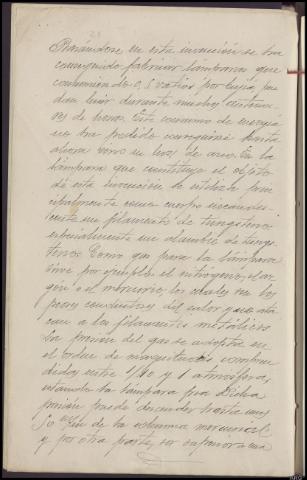 Basándose en esta invención se ha
conseguido fabricar lámparas que
consumiendo 0,5 vatios por bujía pue
dan lucir durante muchos centena
res de horas. Este consumo de energía
no ha podido conseguirse hasta
ahora sino en luz de arco. En la
lámpara que constituye el objeto
de esta invención se utiliza prin
cipalmente como cuerpo incandes-
cente un filamento de tungsteno,
especialmente un alambre de tungs
teno. Como gas para la lámpara
sirve por ejemplo el nitrógeno, el ar
gón o el mercurio, los cuales son los
peores conductores del calor y no ata
can a los filamentos metálicos.
La presión del gas se adopta en
el orden de magnitudes compren
didas entre 1/10 y 1 atmósfera,
estando la lámpara fría dicha
presión puede descender hasta unos
50 m/m de la columna mercurial
y por otra parte, ser superior a una